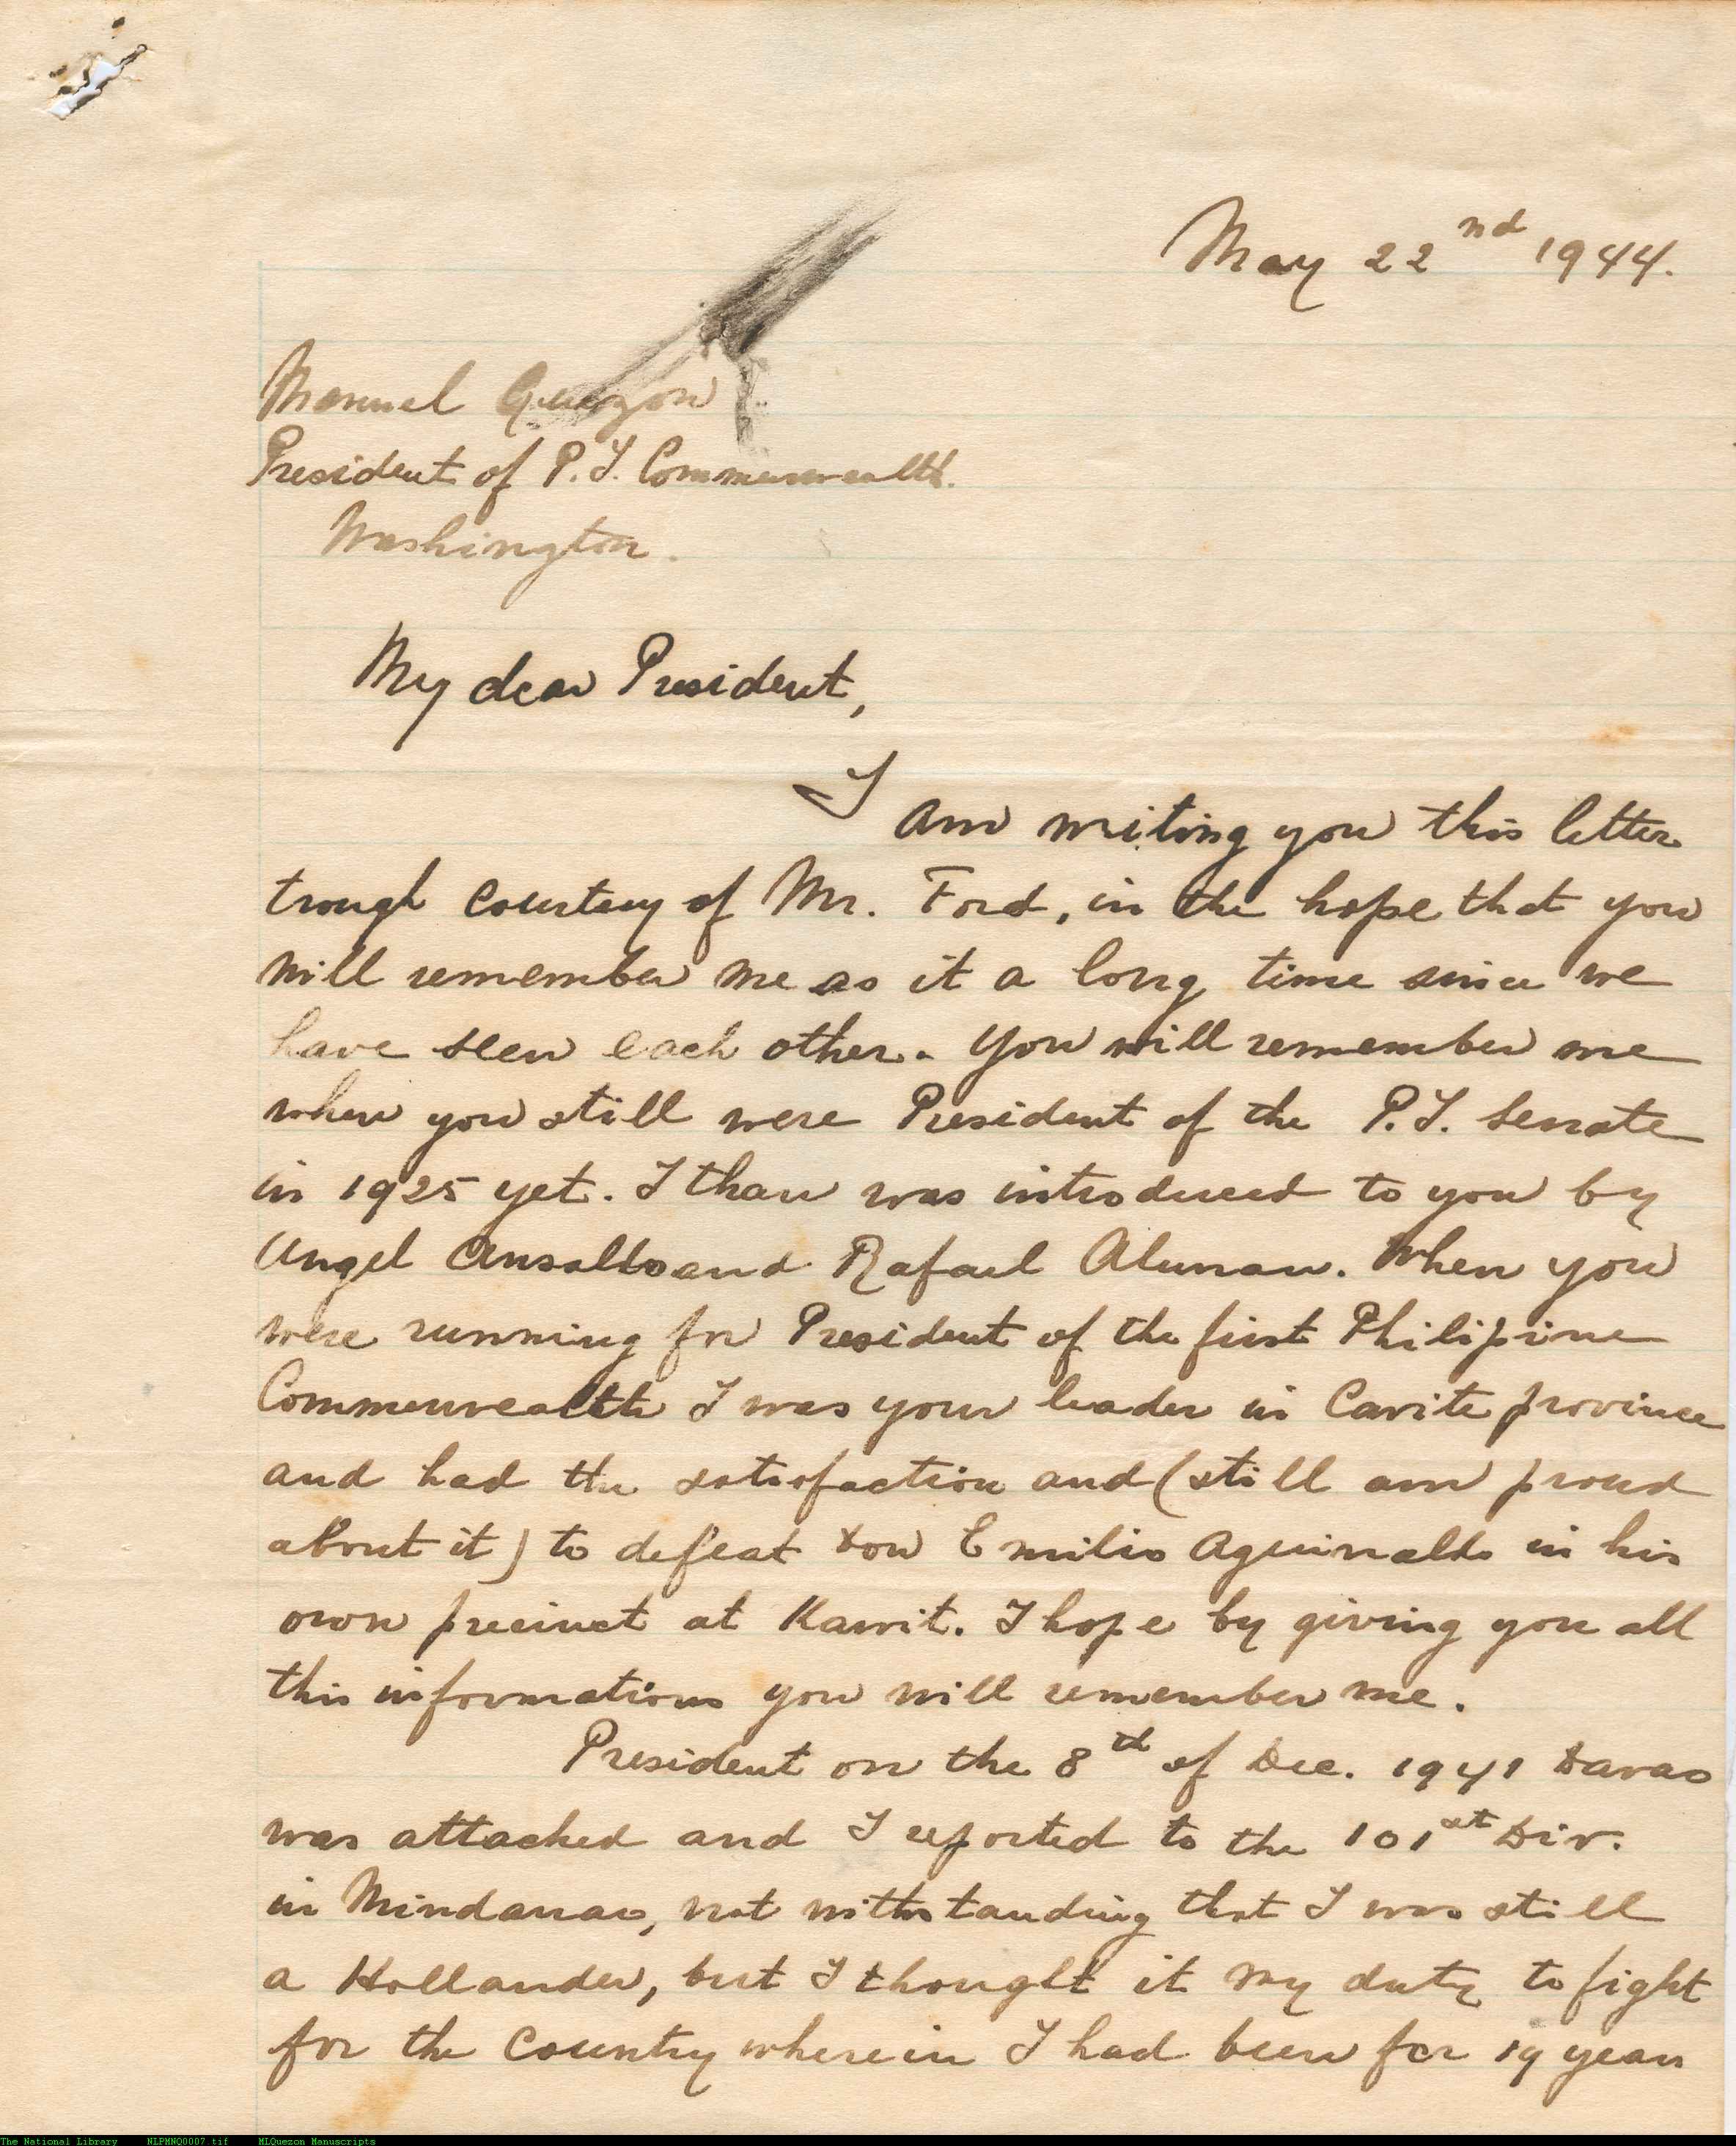 May 22nd 1944.
Manuel Quezon
President of P.I. Commonwealth.
Washington.
My dear President,
I am writing you this letter
trough courtesy of Mr. Ford, in the hope that you
will remember me as it a long time since we
have seen each other. You will remember me
when you still were President of the P.I. Senate
in 1925 yet. I than was introduced to you by
Angel Ansaldo and Rafael Alunan. When you
were running for President of the first Philipine
Commonwealth I was your leader in Cavite province
and had the satisfaction and (still am proud
about it) to defeat Don Emilio Aguinaldo in his
own precinct at Kawit. I hope by giving you all
this informations you will remember me.
President on the 8th of Dec. 1941 Davao
was attacked and I reported to the 101st Div.
in Mindanao, not withstanding that I was still
a Hollander, but I thought it my duty to fight
for the country wherein I had been for 19 years
The National Library NLPMNQ0007.tif MLQuezon Manuscripts